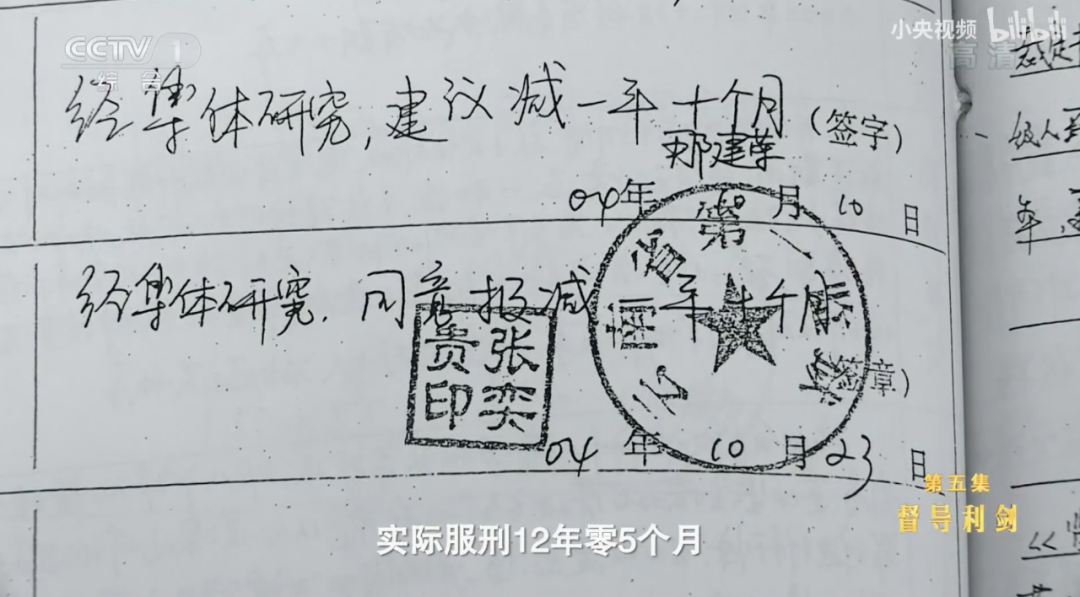 CCTV 1
综合
小央视频 bilibili
高清
经集体研究,建议减一年十个月
(签字)
建荣
04年10月10日
经集体研究.同意报减一年十个月
云南省第一监狱
张奕贵印
(签章)
04年10月23日
级人
年
第五集
督导利剑
实际服刑12年零5个月